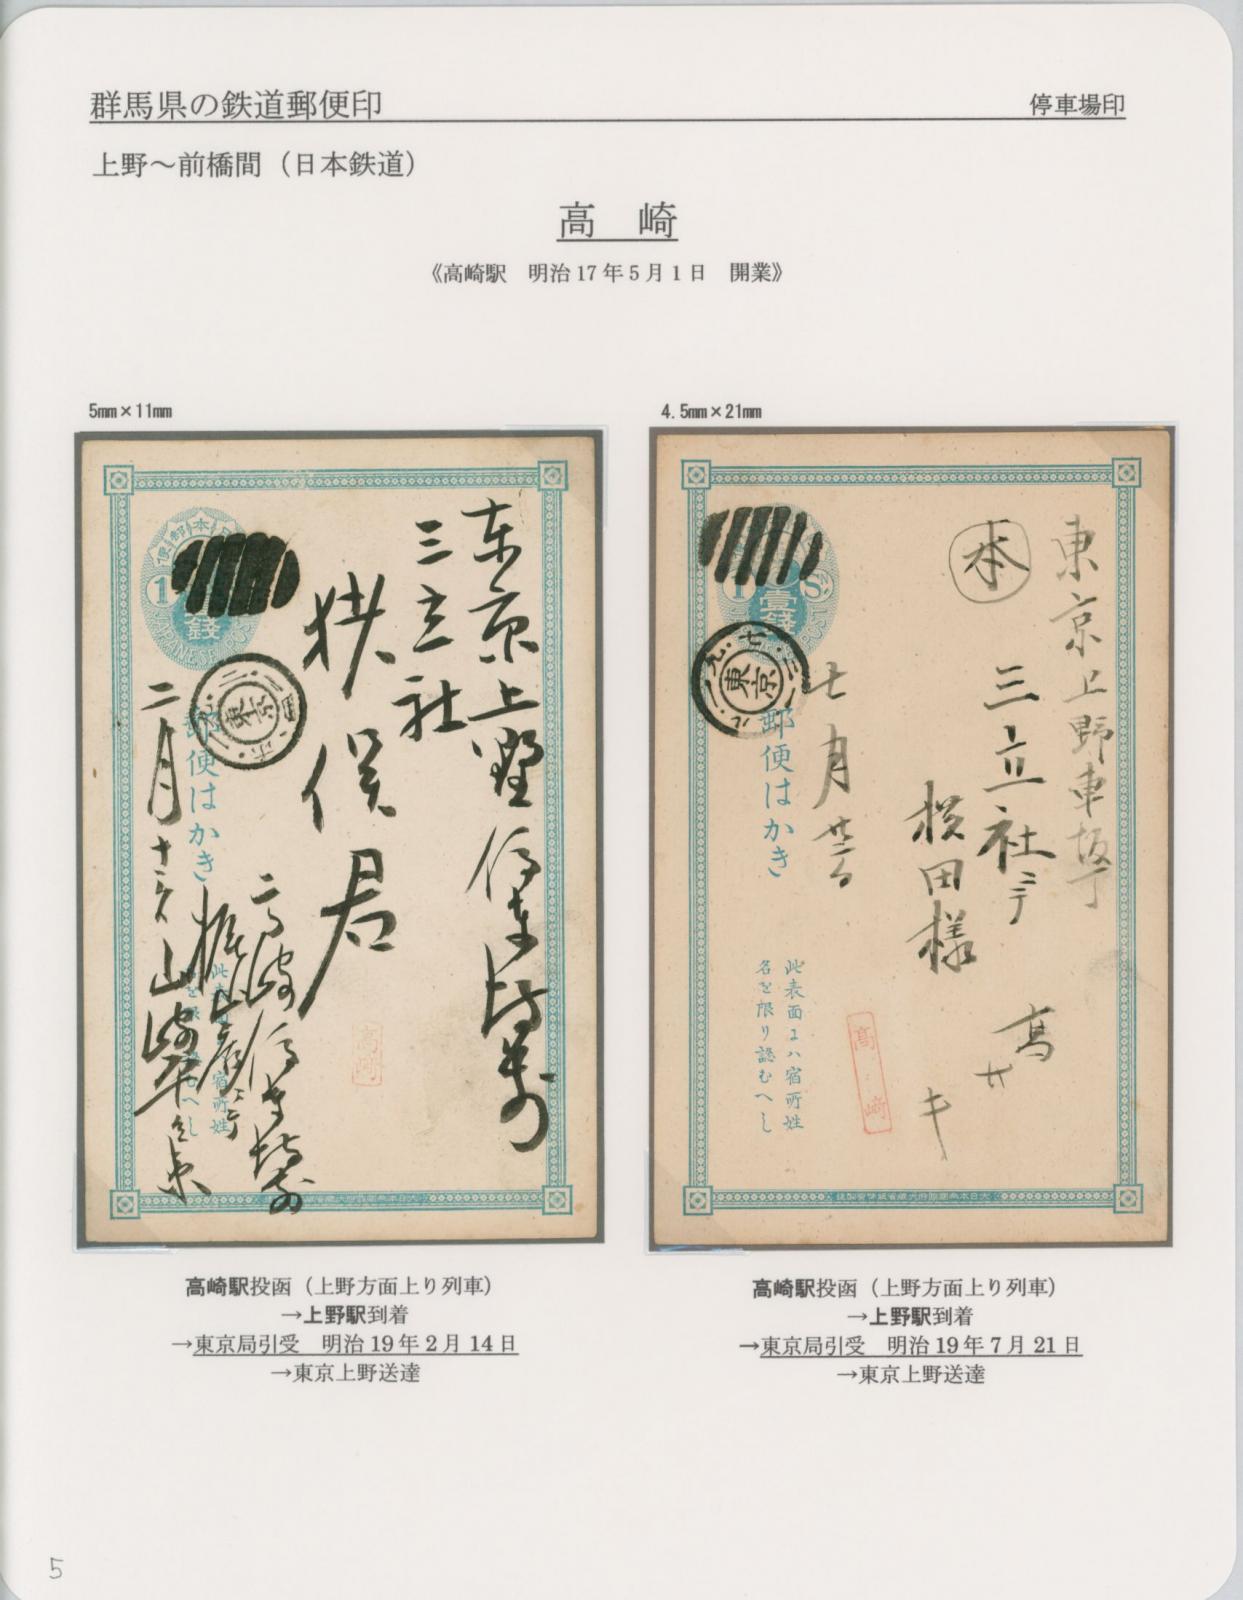 群馬県の鉄道郵便印
停車場印
上野～前橋間（日本鉄道）
高　崎
《高崎駅　明治17年5月1日　開業》
5mm×11mm
東京上野停車場前
三立社
君
高崎停車場前
二月十
山崎
郵便はかき
1
銭
東京
高崎
高崎駅投函（上野方面上り列車）
→上野駅到着
→東京局引受　明治19年2月14日
→東京上野送達
4.5mm×21mm
東京上野車坂丁
本
三立社ニテ
横田様
高サキ
七月廿
郵便はかき
此表面にハ宿所姓
名を限り認むへし
壹銭
東京
高崎
高崎駅投函（上野方面上り列車）
→上野駅到着
→東京局引受　明治19年7月21日
→東京上野送達
5